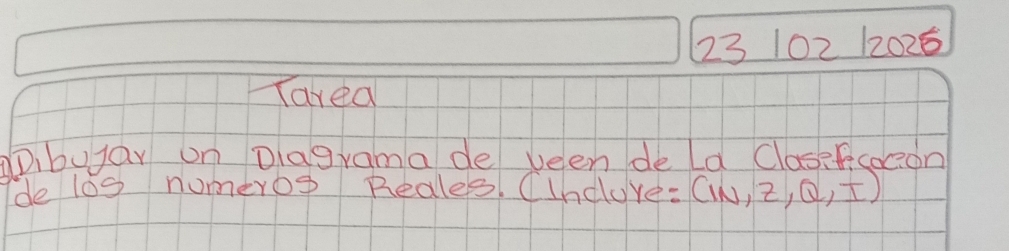 23 | 02 | 2026
Tarea
Dibujar un Diagrama de veen de La Clasificacion
de los numeros Reales. (Incluye: (N, Z, Q, I)